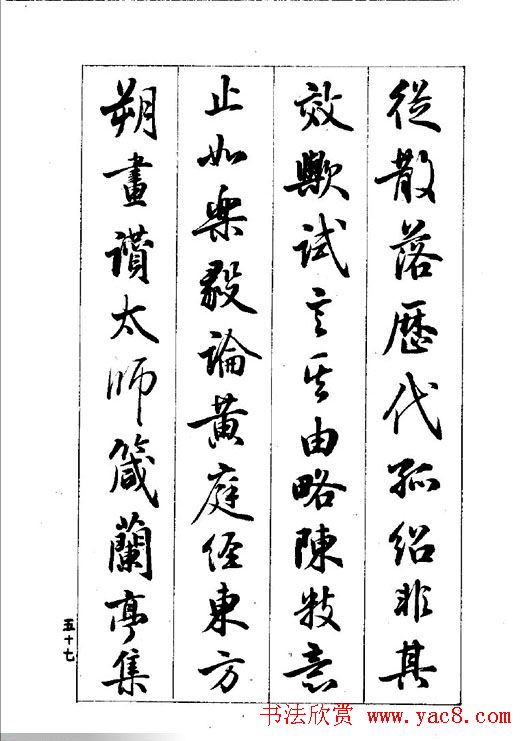 從散落歷代孤紹非其
效歟試言其由略陳數意
止如樂毅論黃庭經東方
朔畫讚太師箴蘭亭集
五十七
书法欣赏 www.yac8.com